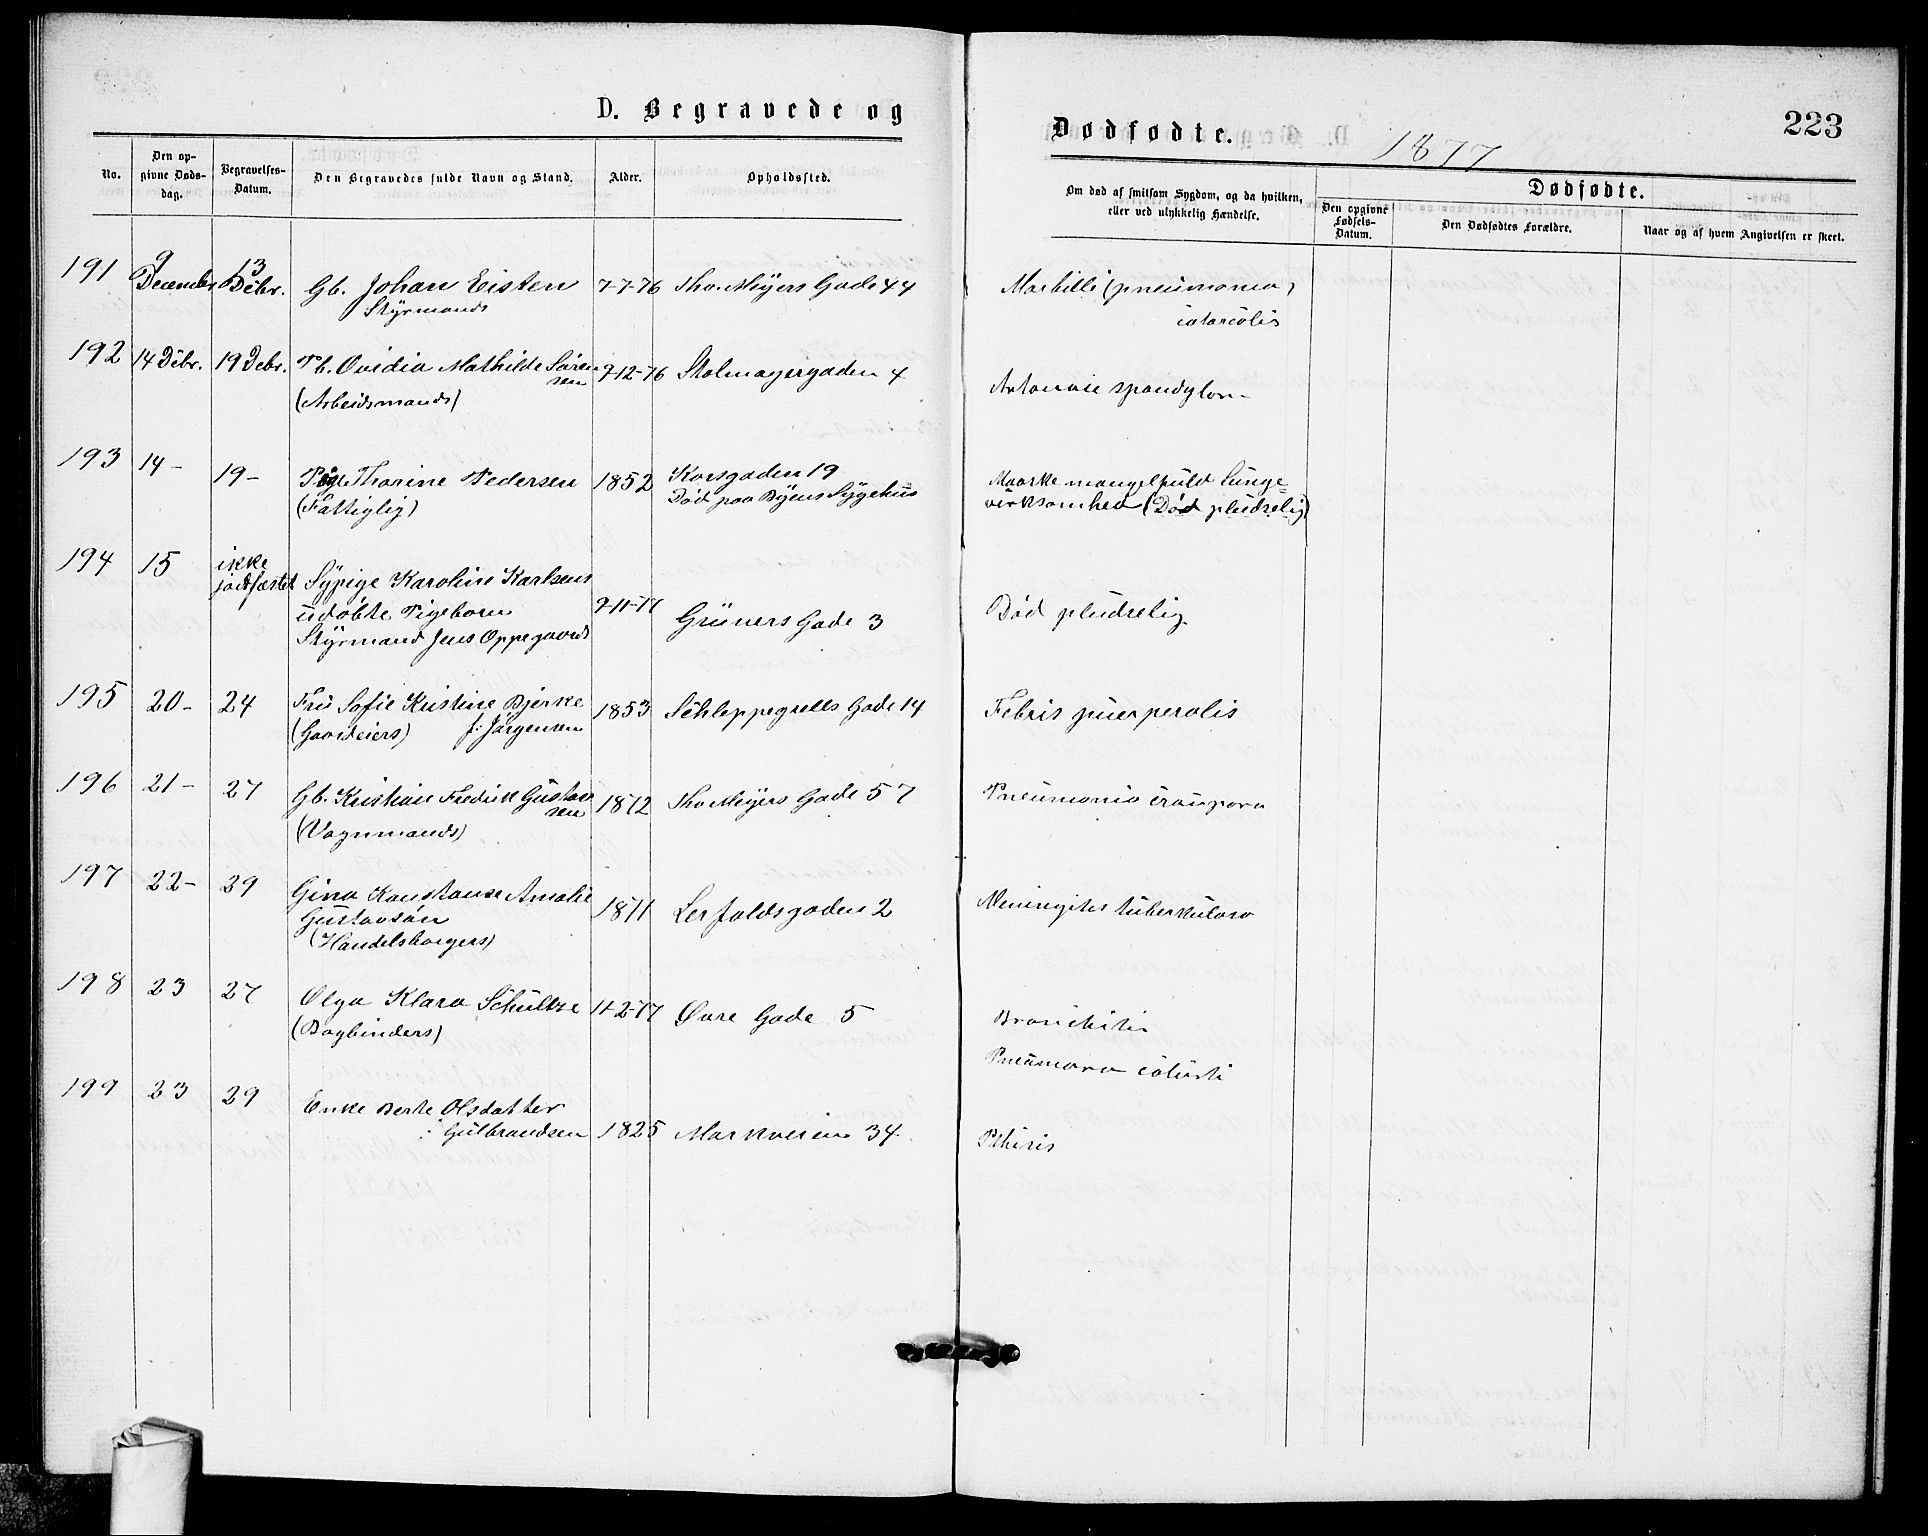 D. Begravede og
Dødfødte.
1877
223
No.
Den op-
givne Døds-
dag.
Begravelses-
Datum.
Den Begravedes fulde Navn og Stand.
Alder.
Opholdssted.
Om død af smitsom Sygdom, og da hvilken,
eller ved ulykkelig Hændelse.
Dødfødte.
Den opgivne
Fødsels-
Datum.
Den Dødfødtes Forældre.
Naar og af hvem Angivelsen er skeet.
191 9 December 13 Debr. Gb. Johan Eisten 7-7-76 Tho. Meyers Gade 44 Morbilli (pneumonia)
Styrmands
192 14 Debr. 19 Debr. Pb. Ovidia Mathilde Sören 9-12-76 Stolmagergaden 4
sen
(Arbeidsmands)
193 14 - 19 - Pige Thorine Pedersen 1852 Korsgaden 19 mangelfuld Lunge=
(Fattiglig) Død paa Byens Sygehus virksomhed (Død pludselig)
194 15 ikke
jordfæstet Sypige Karoline Karlsens
udøbte Pigebarn 9-11-77 Grüners Gade 3 Død pludselig
Styrmand Jens Oppegaards
195 20 - 24 Fru Sofie Kristine Bjerke 1853 Schleppegrells Gade 14 Febris puerperalis
(Gaardeiers) f. Jörgensen
196 21 - 27 Gb. Kristian Fredrik Gustav 1872 Tho Meyers Gade 57 Pneumonia
sen
(Vognmands)
197 22 - 29 Gina Konstanse Amalie 1871 Lerfaldsgaden 2 Meningitis tuberkulosa
Gustavsön
(Handelsborgers)
198 23 27 Olga Klara Schultze 11-2-77 Øvre Gade 5 Bronchitis
(Bogbinders)
199 23 29 Enke Berte Olsdatter
Gulbrandsen 1825 Markveien 34. Pthisis